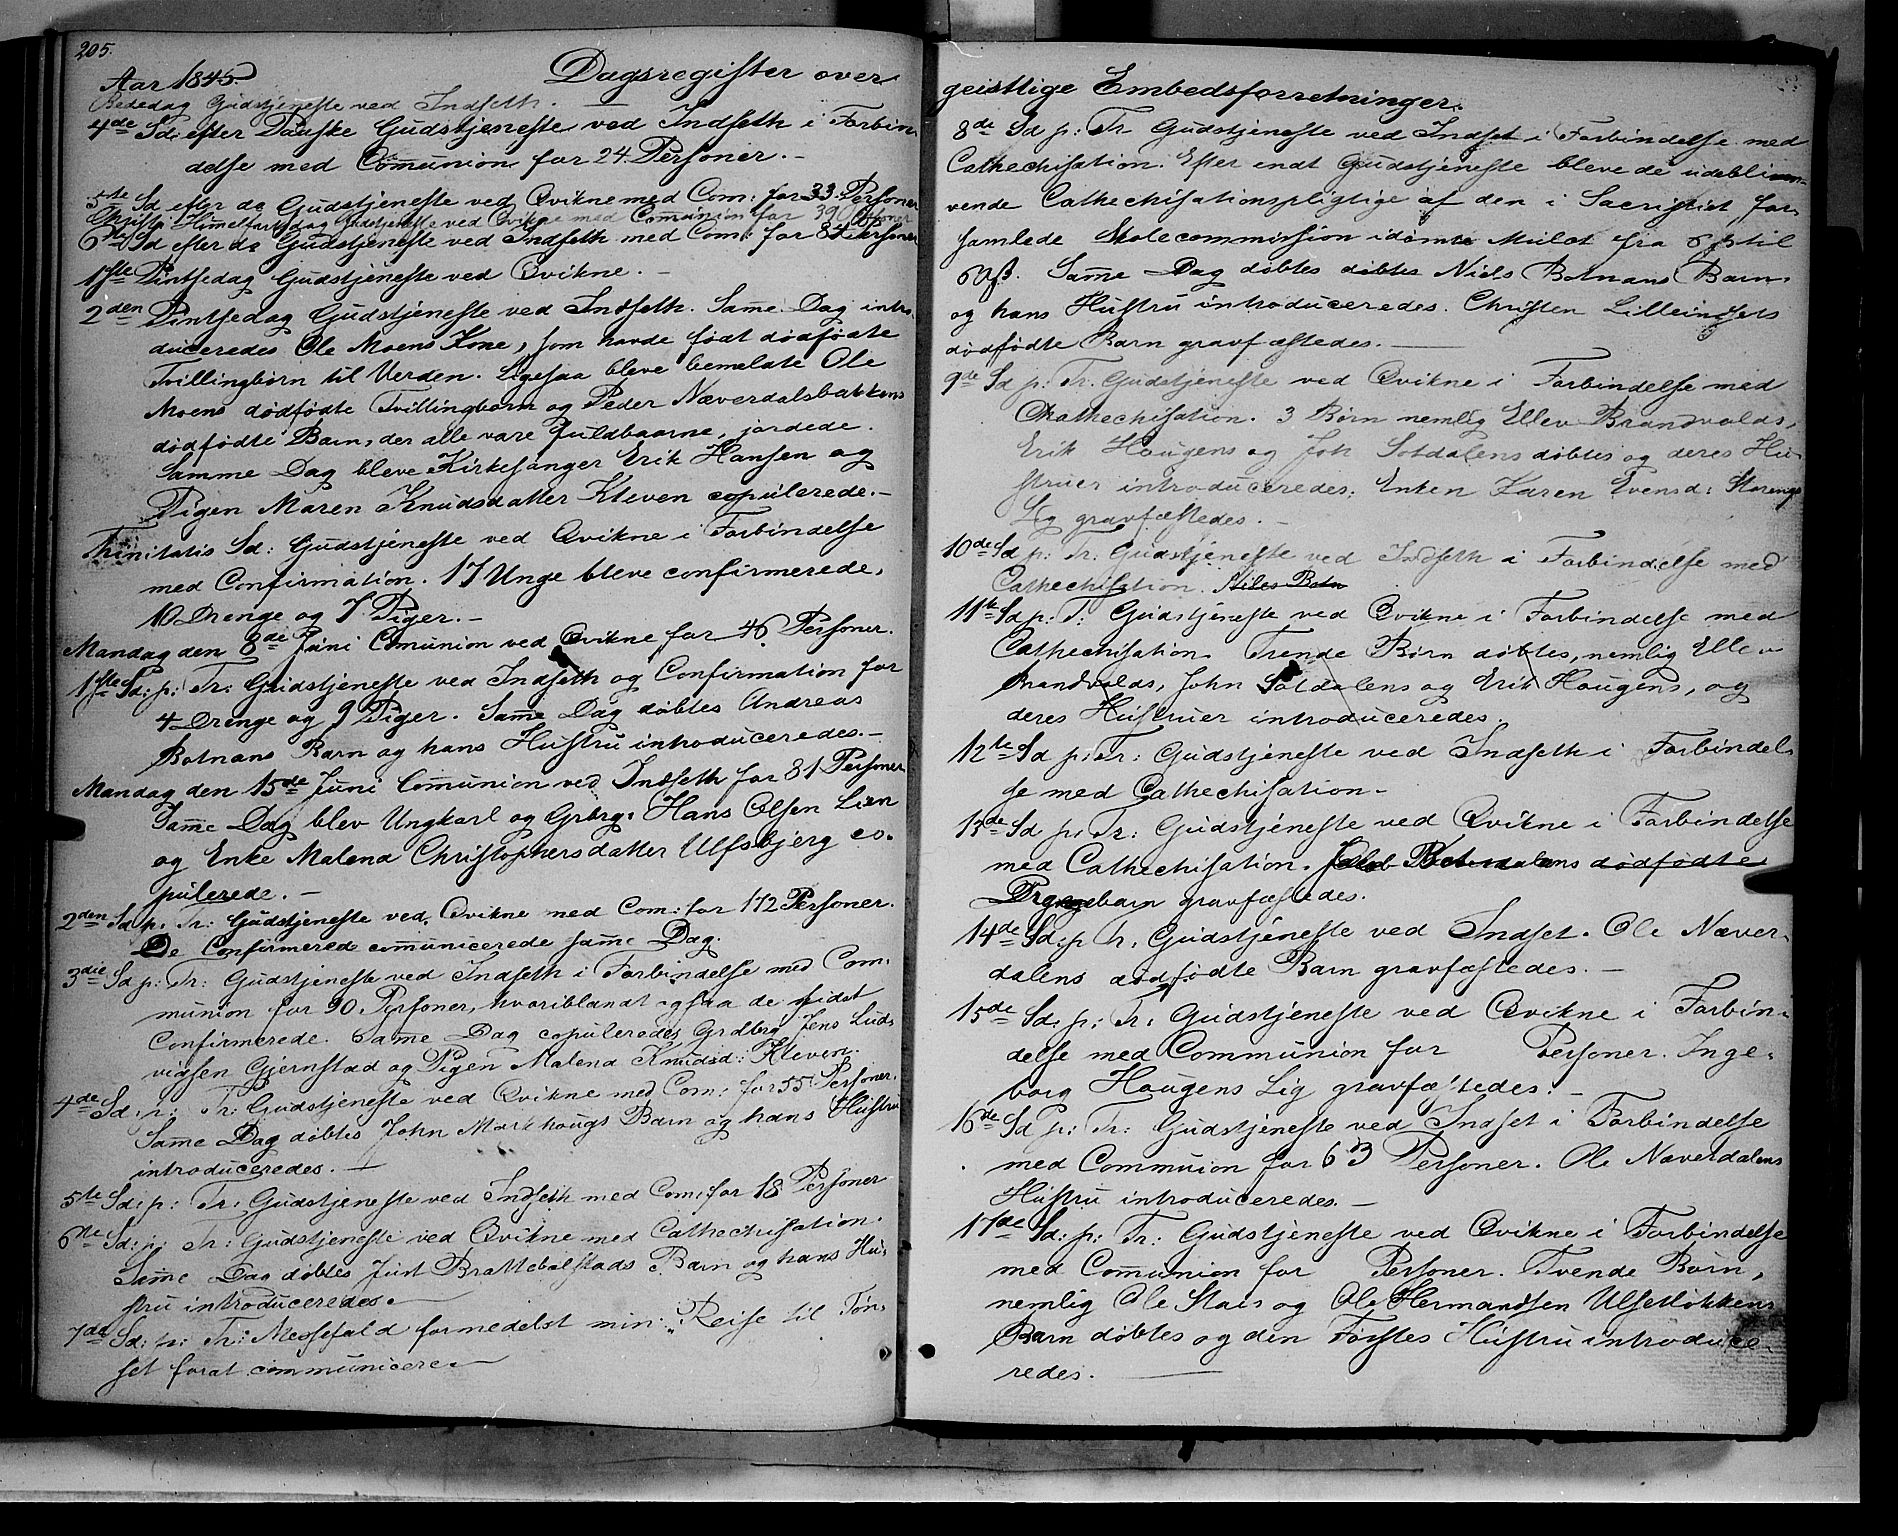 205.
Aar 1845
Dagsregister over
Bededag Gudstjeneste ved Indseth. —
4de Sd. efter Paaske Gudstjeneste ved Indseth i Forbin-
delse med Comunion for 24 Personer. -
5te Sd efter do Gudstjeneste ved Qvikne med Com: for 33 Personer
Christi Himmelfartsdag Gudstjeneste ved Qvikne med Comunion for 39 Personer
6te Sd efter do Gudstjeneste ved Indseth med Com: for 84 Personer
1ste Pintsedag Gudstjeneste ved Qvikne. -
2den Pintsedag Gudstjeneste ved Indseth. Same Dag intro-
duceredes Ole Moens Kone, som havde født dødfødte
Tvillingbørn til Verden. Ligesaa bleve bemeldte Ole
Moens dødfødte Tvillingbørn og Peder Næverdalsbakkens
dødfødte Barn, der alle vare fuldbaarne, jordede.
Samme Dag bleve Kirkesanger Erik Hansen og
Pigen Maren Knudsdatter Kleven copulerede. -
Trinitatis Sd: Gudstjeneste ved Qvikne i Forbindelse
med Confirmation. 17 Unge bleve confirmerede,
10 Drenge og 7 Piger. -
Mandag den 8de Juni Comunion ved Qvikne for 46 Personer.
1ste Sd: p: Tr: Gudstjeneste ved Indseth og Confirmation for
4 Drenge og 9 Piger. Same Dag døbtes Andreas
Botnans Barn og hans Hustru introduceredes. -
Mandag den 15de Juni Comunion ved Indseth for 81 Personer
Same Dag blev Ungkarl og Grbrg: Hans Olsen Lien
og Enke Malena Christophersdatter Ulfsbjerg co-
pulerede. -
2den Sd p. Tr: Gudstjeneste ved Qvikne med Com: for 112 Personer.
De Confirmerede comunicerede same Dag.
3die Sd p: Tr: Gudstjeneste ved Indseth i Forbindelse med Com-
munion for 90 Personer, hvoriblandt ogsaa de sidst
Confirmerede. Same Dag copuleredes Grdbrg Jens Lud-
vigsen Gjernstad og Pigen Malena Knudsd: Kleven.
4de Sd: p: Tr: Gudstjeneste ved Qvikne med Com: for 55 Personer.
Same Dag døbtes John Morkhougs Barn og hans Hustru
introduceredes. —
5te Sd: p: Tr: Gudstjeneste ved Indseth med Com: for 18 Personer
6te Sd: p: Tr: Gudstjeneste ved Qvikne med Cathechisation.
Same Dag døbtes Just Brattebalstads Barn og hans Hu-
stru introduceredes.
7de Sd: p: Tr: Messefald formedelst min Reise til Tøn-
set forat communicere
geistlige Embedsforretninger.
8de Sd p: Tr Gudstjeneste ved Indset i Forbindelse med
Cathechisation. Efter endt Gudstjeneste bleve de udebli-
vende Cathechisationspligtige af den i Sacristiet for-
samlede Skolecommission idømte Mulct fra 6 ß til
60 ß. Same Dag døbtes døbtes Niels Botnans Barn
og hans Hustru introduceredes. Christen Lilleindsets
dødfødte Barn gravfæstedes. —
9de Sd p: Tr. Gudstjeneste ved Qvikne i Forbindelse med
Chathechisation. 3 Børn nemlig Ellev Brandvolds,
Erik Hougens og Joh Sotdalens døbtes og deres Hu-
struer introduceredes. Enken Karen Evensd: Storeng
Lig gravfæstedes. -
10de Sd p: Tr: Gudstjeneste ved Indseth i Forbindelse med
Cathechisation. Niles Botn
11te Sd p: T: Gudstjeneste ved Qvikne i Forbindelse med
Cathechisation. Trende Børn døbtes, nemlig Ellev
Brandvolds, John Sotdalens og Erik Hougens, og
deres Hustruer introduceredes.
12te Sd p: Tr: Gudstjeneste ved Indseth i Forbindel-
se med Cathechisation -
13de Sd p: Tr: Gudstjeneste ved Qvikne i Forbindelse
med Cathechisation. dødfødte
Drengebarn gravfæstedes.
14de Sd: p Tr. Gudstjeneste ved Indset. Ole Næver-
dalens dødfødte Barn gravfæstedes. -
15de Sd: p: Tr: Gudstjeneste ved Qvikne i Forbin-
delse med Communion for Personer. Inge-
borg Hougens Lig gravfæstedes. -
16de Sd p: Tr: Gudstjeneste ved Indset i Forbindelse
med Commuion for 63 Personer. Ole Næverdalens
Hustru introduceredes. -
17de Sd: p: Tr: Gudstjeneste ved Qvikne i Forbindelse
med Comunion for Personer. Tvende Børn,
nemlig Ole Stais og Ole Hermandsen Ulsetløkkens
Barn døbtes og den Førstes Hustru introduce-
redes. —